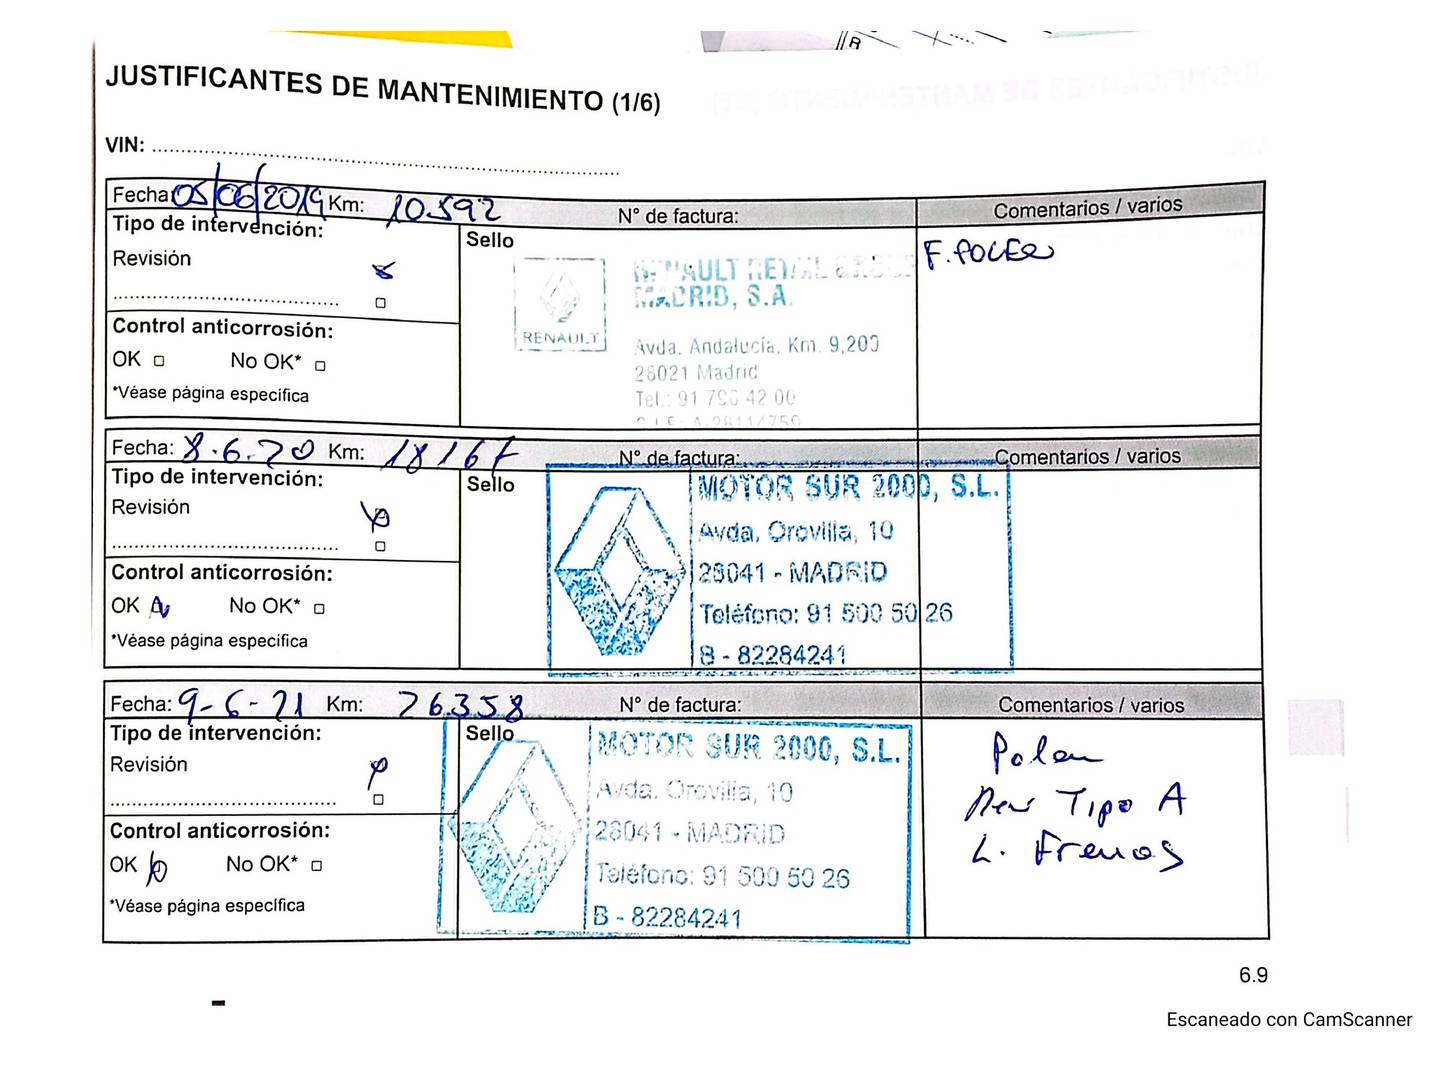 JUSTIFICANTES DE MANTENIMIENTO (1/6)
VIN: ....................
Fecha: 05/06/2019 Km: 10.592 N° de factura: Comentarios / varios
Tipo de intervención:
Sello
Revisión
F. POLEN
RENAULT RETAIL GROUP
MADRID, S.A.
RENAULT
Avda. Andalucía, Km. 9,200
28021 Madrid
Tel.: 91 796 42 00
C.I.F. A-28114759
Control anticorrosión:
OK No OK*
*Véase página específica
Fecha: 8.6.20 Km: 18167 N° de factura: Comentarios / varios
Tipo de intervención:
Sello
Revisión
MOTOR SUR 2000, S.L.
Avda. Orovilla, 10
28041 - MADRID
Teléfono: 91 500 50 26
B - 82284241
Control anticorrosión:
OK No OK*
*Véase página específica
Fecha: 9-6-21 Km: 26.358 N° de factura: Comentarios / varios
Tipo de intervención:
Sello
Revisión
MOTOR SUR 2000, S.L.
Avda. Orovilla, 10
28041 - MADRID
Teléfono: 91 500 50 26
B - 82284241
Polen
Rev Tipo A
L. Frenos
Control anticorrosión:
OK No OK*
*Véase página específica
6.9
Escaneado con CamScanner